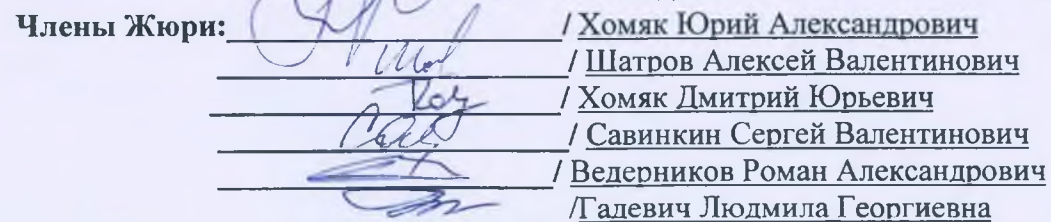 Члены Жюри: / Хомяк Юрий Александрович
/ Шатров Алексей Валентинович
/ Хомяк Дмитрий Юрьевич
/ Савинкин Сергей Валентинович
/ Ведерников Роман Александрович
/Гадевич Людмила Георгиевна